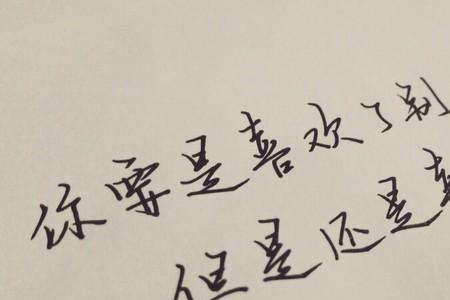 你要是喜欢了别
但是还是喜